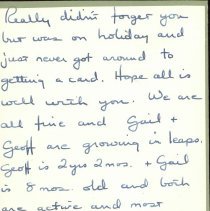 Really didn't forget you
but was on holiday and
just never got around to
getting a card. Hope all is
well with you. We are
all fine and Gail +
Geoff are growing in leaps.
Geoff is 2 yrs 2 mos. + Gail
is 8 mos. old and both
are active and most